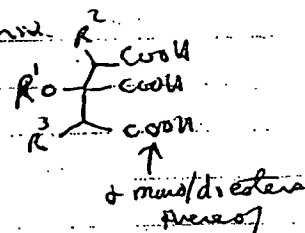 R²
COOH
R¹O COOH
R³ COOH
↑
& mono/diesters
thereof